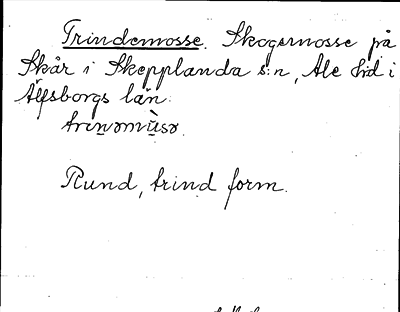 Trindemosse. Skogsmosse på
Skår i Skepplanda s:n, Ale hd i
Älfsborgs län.
trinəmùsə.
Rund, trind form.